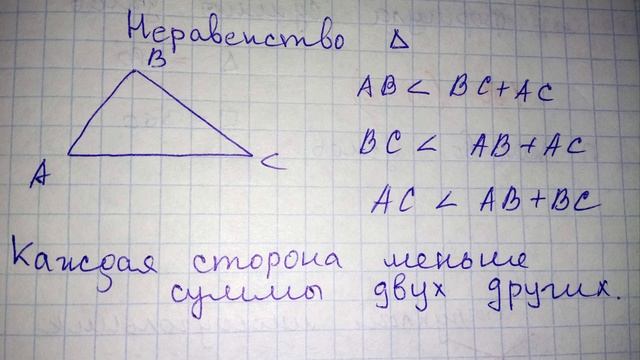 Неравенство Δ
B
A
C
AB < BC + AC
BC < AB + AC
AC < AB + BC
Каждая сторона меньше
суммы двух других.